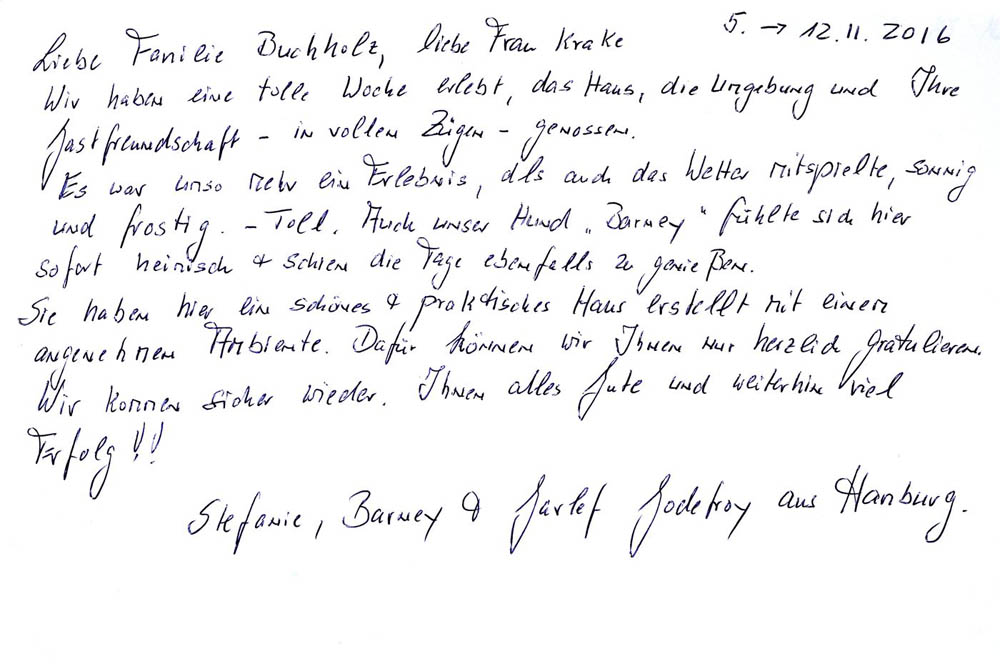 5. → 12.11. 2016
Liebe Familie Buchholz, liebe Frau Krake
Wir haben eine tolle Woche erlebt, das Haus, die Umgebung und Ihre
Gastfreundschaft - in vollen Zügen - genossen.
Es war umso mehr ein Erlebnis, als auch das Wetter mitspielte, sonnig
und frostig. - Toll. Auch unser Hund „Barney“ fühlte sich hier
sofort heimisch & schien die Tage ebenfalls zu genießen.
Sie haben hier ein schönes & praktisches Haus erstellt mit einem
angenehmen Ambiente. Dafür können wir Ihnen nur herzlich gratulieren.
Wir kommen sicher wieder. Ihnen alles Gute und weiterhin viel
Erfolg !!
Stefanie, Barney & Godefroy aus Hamburg.